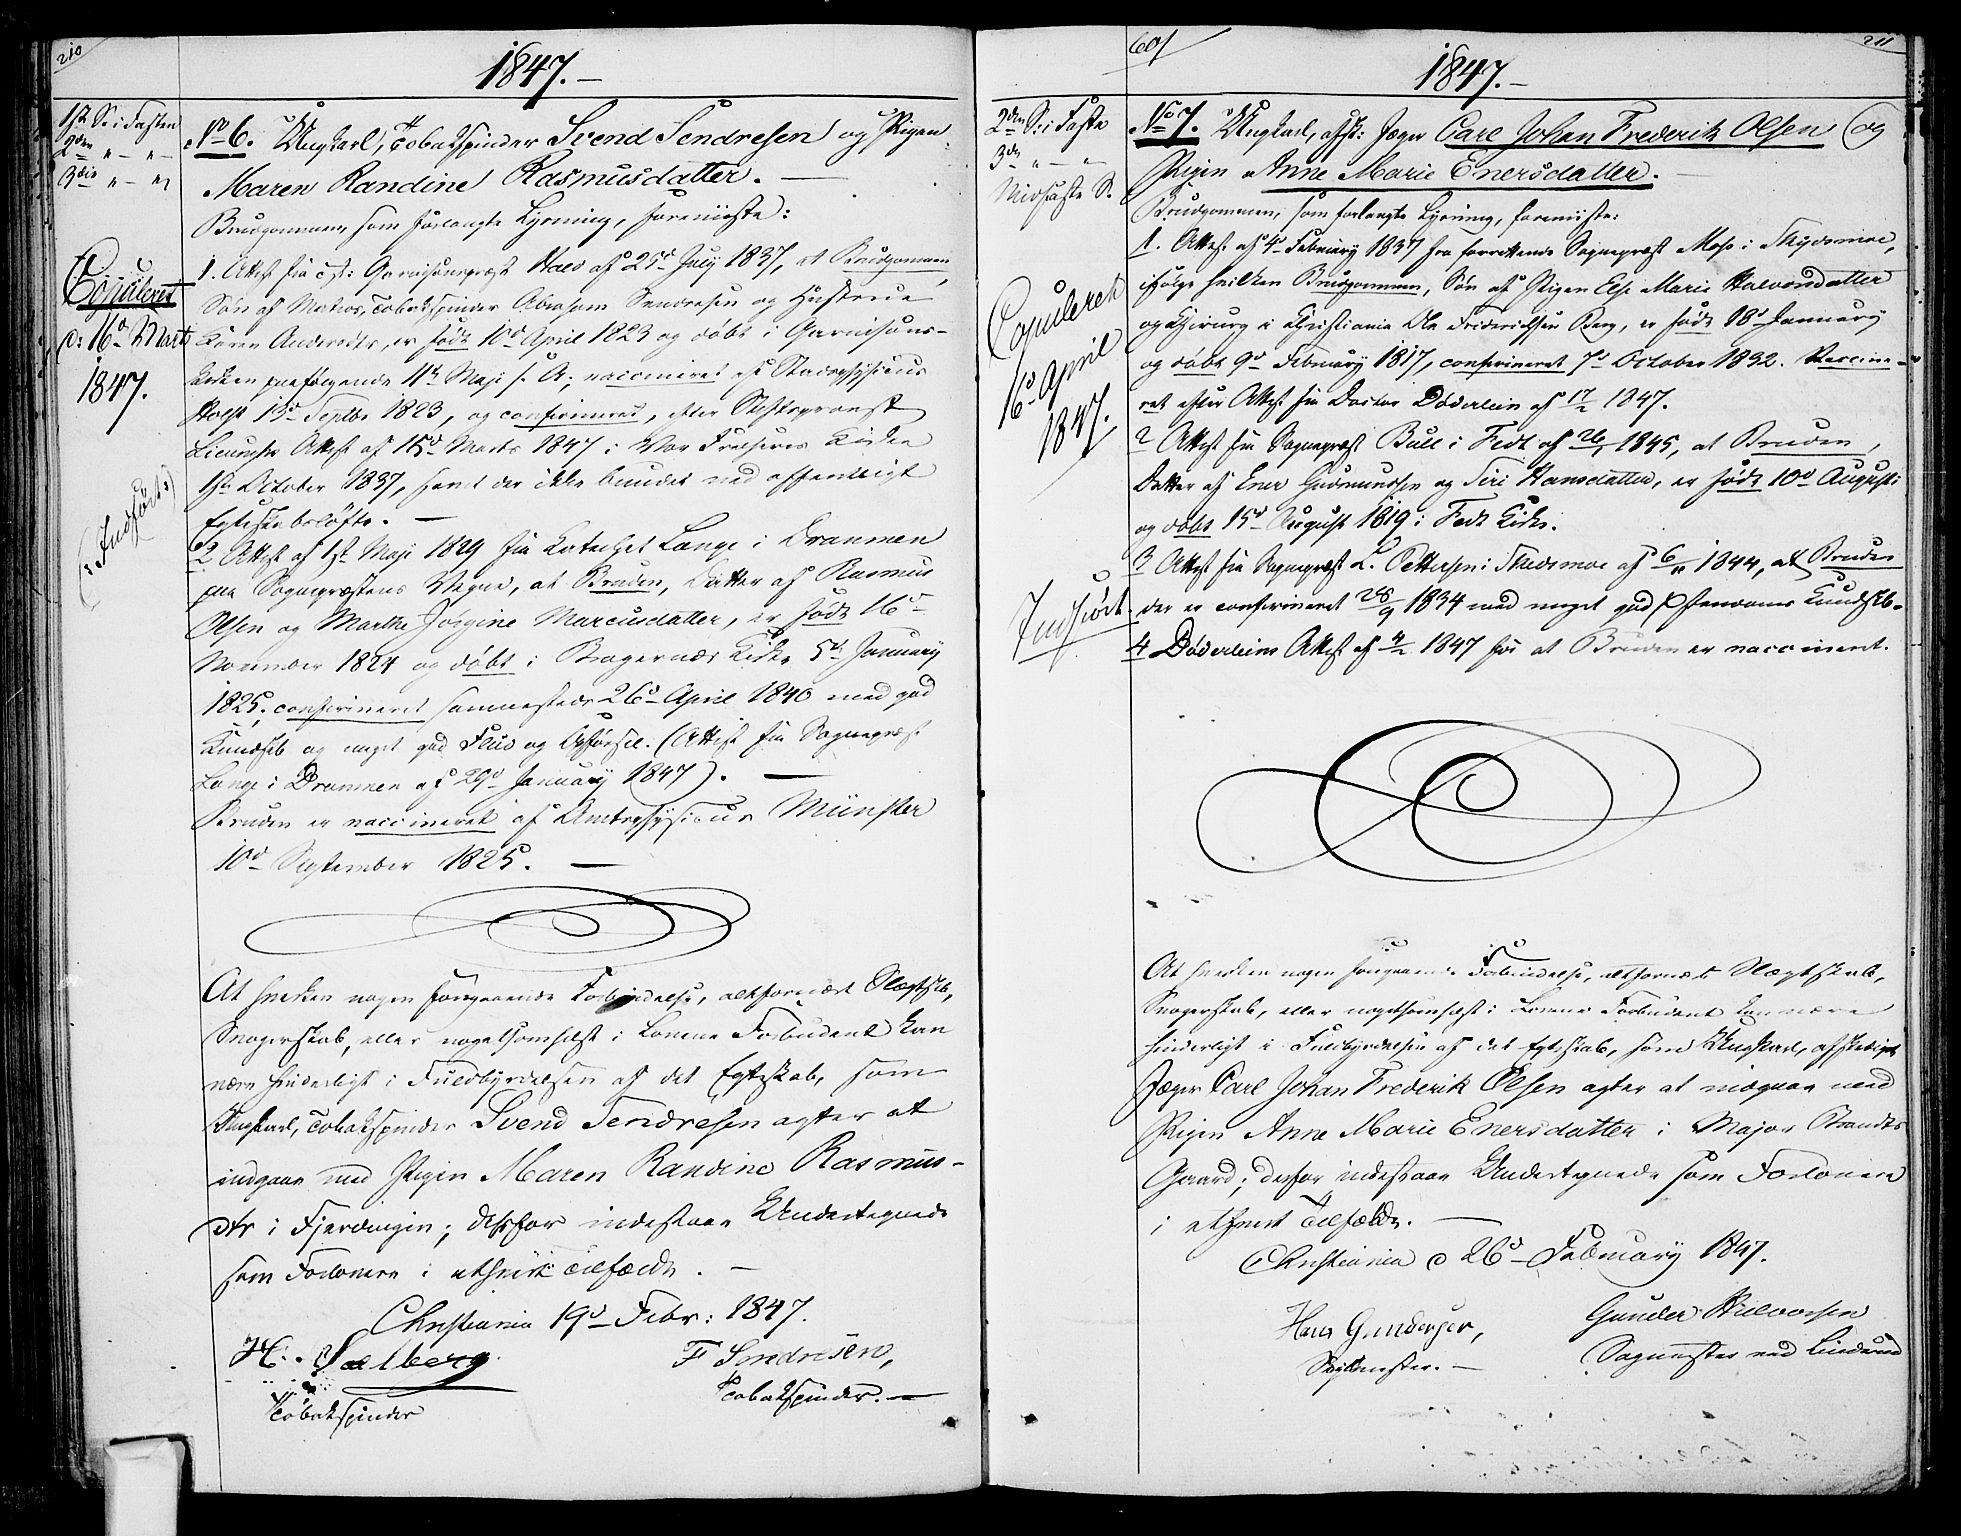 210
1847.
1ste S. i Fasten
2den " — " —
3die " — "
No 6. Ungkarl, Tobakspinder Svend Sendresen og Pigen
Maren Randine Rasmusdatter.
Brudgommen, som forlangte Lysning, foreviiste:
1. Attest fra cst: Garnisonspræst Hald af 25d July 1837, at Brudgommen,
Søn af Tobakspinder Abraham Sendresen og Hustrue
Karen Andersdtr, er født 10d April 1823 og døbt i Garnisons-
kirken paafølgende 11te Maji s. A; vaccineret af Stadsphysicus
Holst 13d Septbr 1823, og confirmeret, efter Stiftsprovst
Attest af 15d Marts 1847 i Vor Frelsers Kirke
1ste October 1837, samt der ikke bundet ved offentligt
Egteskabsløfte.
2 Attest af 1ste Maji 1829 fra Catechet Lange i Drammen
paa Sognepræstens Vegne, at Bruden, Datter af Rasmus
Olsen og Marthe Jørgine Marcusdatter, er født 16d
November 1824 og døbt i Bragernæs Kirke 5te January
1825, confirmeret sammesteds 26d April 1840 med god
Kundskb og meget god Flid og Opførsel. (Attest fra Sognepræst
Lange i Drammen af 29d January 1847).
Bruden er vaccineret af Amtsphysicus Münster
10d September 1825.
Copuleret
d: 16d Marts
1847.
(: Indført :)
At hverken nogen foregaaende Forbindelse, altfornært Slægtskb,
Svogerskab, eller nogetsomhelst i Lovene Forbudent kan
være hinderligt i Fuldbyrdelsen af det Egteskab, som
Ungkarl, Tobakspinder Svend Sendresen agter at
indgaae med Pigen Maren Randine Rasmus-
dtr i Fjerdingen; derfor indestaae Undertegnede
som Forlovere i ethvert Tilfælde.
Christiania 19d Febr: 1847.
H. Sælberg
Tobakspinder
F Sendresen,
Tobakspinder.
60/
211
1847.
2den S. i Faste
3die " — "
Midfaste S.
No 7. Ungkarl, afsk: Jæger Carl Johan Frederik Olsen og
Pigen Anne Marie Enersdatter.
Brudgommen, som forlangte Lysning, foreviiste:
1. Attest af 4d February 1837 fra forrettende Sognepræst Moss i Skydsmoe,
ifølge hvilken Brudgommen, Søn af Pigen Else Marie Halvorsdatter
og Chirurg i Christiania Ole Friderichsen Berg, er født 18d January
og døbt 9d February 1817, confirmeret 7d October 1832. Vaccine-
ret efter Attest fra Doctor Døderlein af 17/2 1847.
2 Attest fra Sognepræst Bull i Fedt af 26/1 1845, at Bruden,
Datter af Ener Gudmundsen og Siri Hansdatter, er født 10d August
og døbt 15d August 1819 i Fedt Kirke.
3 Attest fra Sognepræst L. Pettersen i Skedsmoe af 6/11 1844, at Bruden
der er confirmeret 28/9 1834 med meget god Christendoms Kundskb.
4 Døderleins Attest af 4/2 1847 for at Bruden er vaccineret.
Copuleret
16d April
1847.
Indført
At hverken nogen foregaaende Forbindelse, altfornært Slægtskab,
Svogerskab, eller nogetsomhelst i Lovene Forbudent kan være
hinderligt i Fuldbyrdelsen af det Egteskab, som Ungkarl, afskediget
Jæger Carl Johan Frederik Olsen agter at indgaae med
Pigen Anne Marie Enersdatter i Major Brandts
Gaard; derfor indestaae Undertegnede som Forlovere
i ethvert Tilfælde.
Christiania d 26d February 1847.
Hans Gundersen,
Gunder Halvorsen
ved Linderud